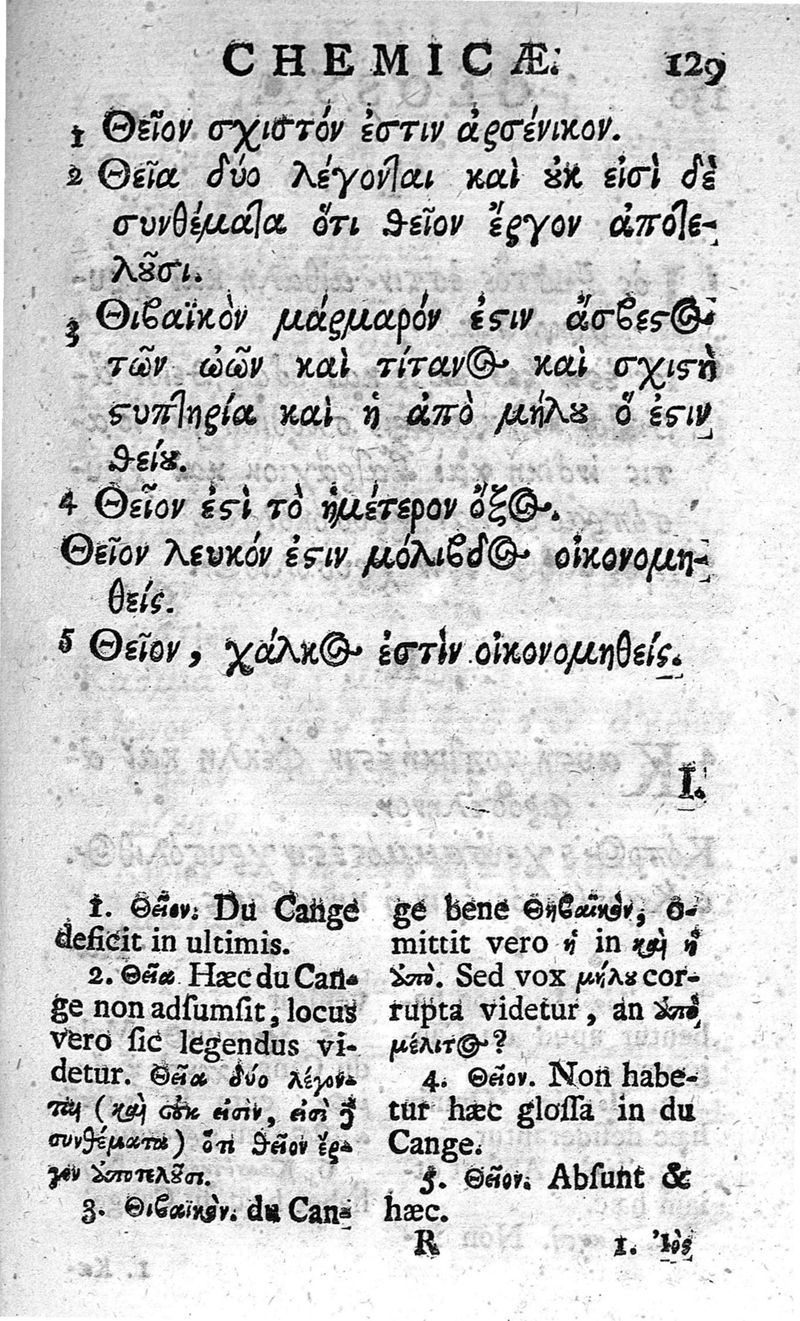 CHEMICÆ. 129
1 Θεῖον σχιστόν ἐστιν ἀρσένικον.
2 Θεῖα δύο λέγονται καὶ ȣ̓κ εἰσὶ δὲ
συνθέματα ὅτι θεῖον ἔργον ἀποτε-
λȣ͂σι.
3 Θιβαϊκὸν μάρμαρόν ἐϛιν ἄσβεϛος
τῶν ὠῶν καὶ τίτανος καὶ σχιϛὴ
ϛυπτηρία καὶ ἡ ἀπὸ μήλȣ ὅ ἐϛιν
θείȣ.
4 Θεῖον ἐϛὶ τὸ ἡμέτερον ὄξος.
Θεῖον λευκόν ἐϛιν μόλιβδος οἰκονομη-
θείς.
5 Θεῖον, χάλκος ἐστὶν οἰκονομηθείς.
I.
1. Θεῖον. Du Cange
deficit in ultimis.
2. Θεῖα Hæc du Can-
ge non adſumſit, locus
vero ſic legendus vi-
detur. Θεῖα δύο λέγον-
ται (καὶ οὐκ εἰσὶν, εἰσὶ δὲ
συνθέματα) ὅτι θεῖον ἔρ-
γον ἀποτελȣ͂σι.
3. Θιβαϊκὸν. du Can-
ge bene Θηβαϊκὸν, o-
mittit vero ἡ in καὶ ἡ
ἀπὸ. Sed vox μήλȣ cor-
rupta videtur, an ἀπὸ
μέλιτος?
4. Θεῖον. Non habe-
tur hæc gloſſa in du
Cange.
5. Θεῖον. Abſunt &
hæc.
R 1. Ἰὸς